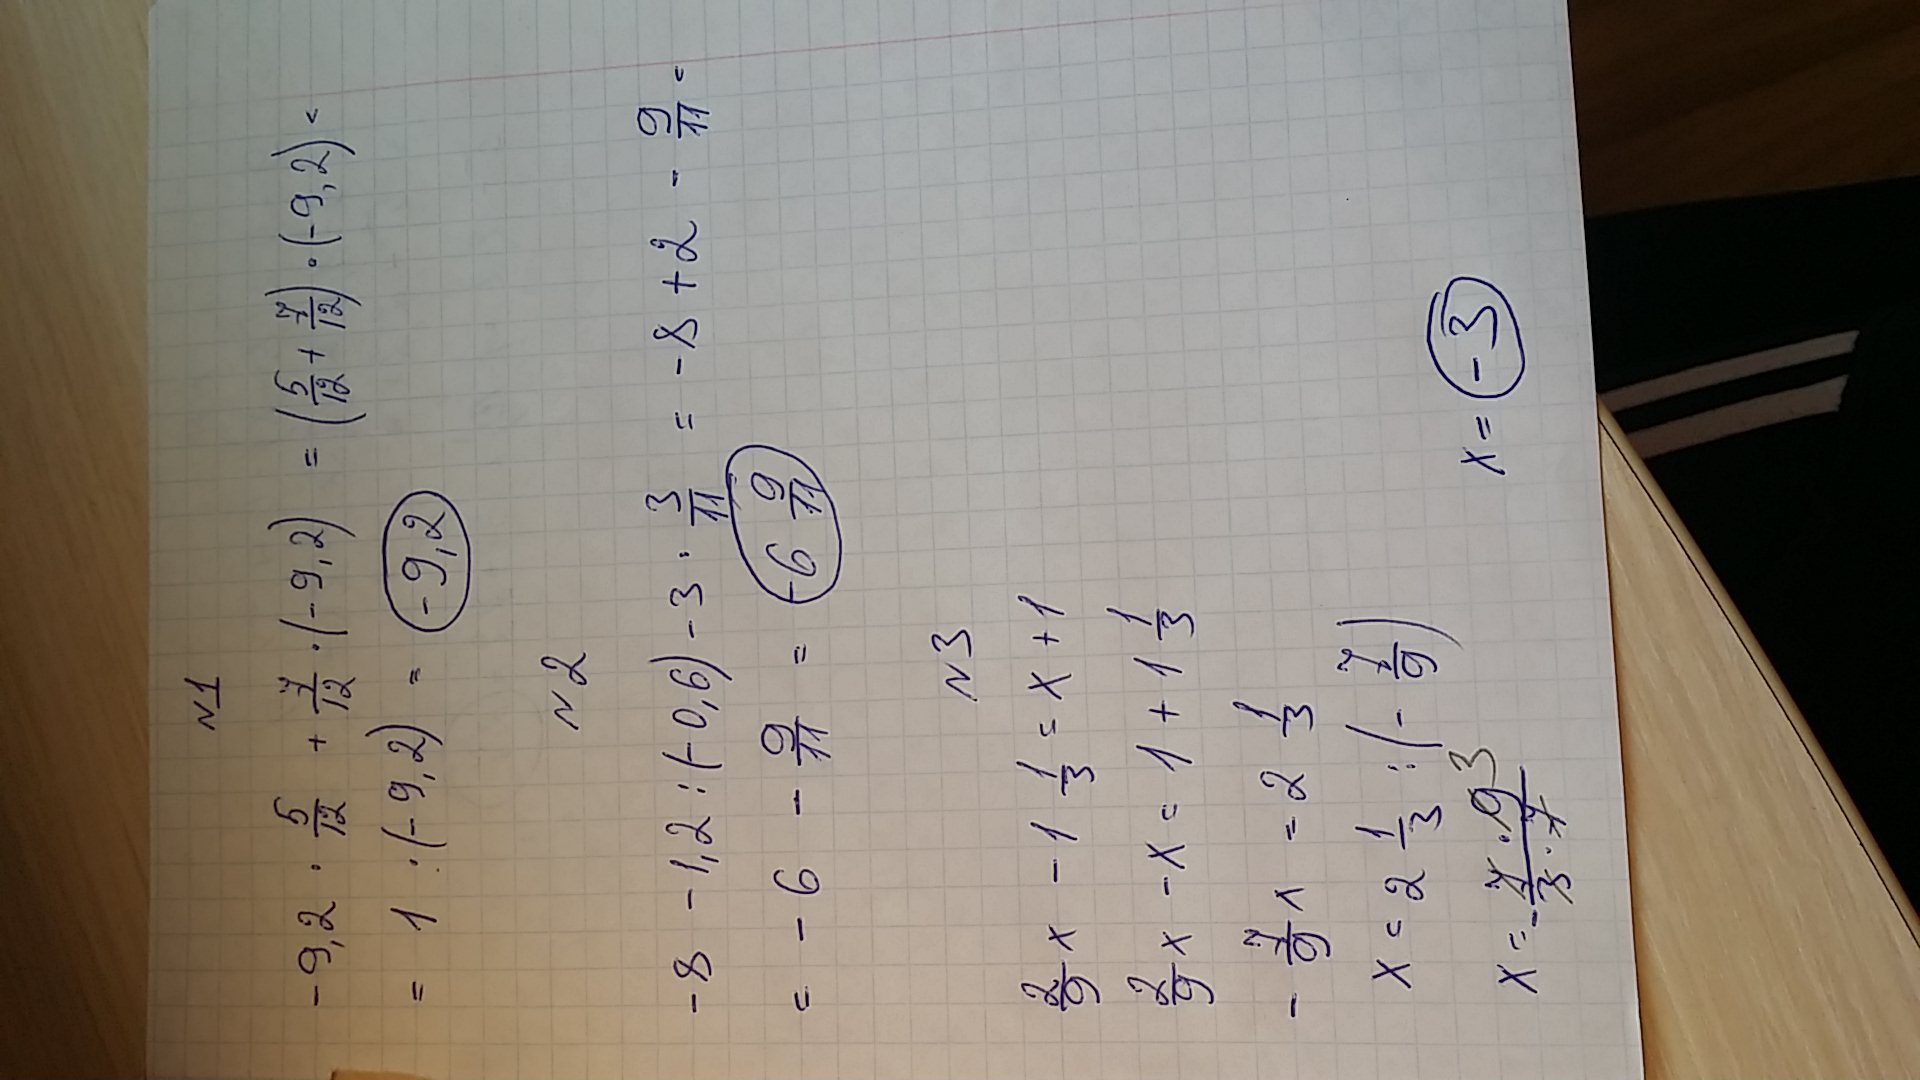 N1
-9,2 · 5/12 + 7/12 · (-9,2) = (5/12 + 7/12) · (-9,2) =
= 1 · (-9,2) = -9,2
N2
-8 - 1,2 : (-0,6) - 3 · 3/11 = -8 + 2 - 9/11 =
= -6 - 9/11 = -6 9/11
N3
2/9 x - 1 1/3 = x + 1
2/9 x - x = 1 + 1 1/3
- 7/9 x = 2 1/3
x = 2 1/3 : (- 7/9)
x = - 7·9 3/3·7 x = -3